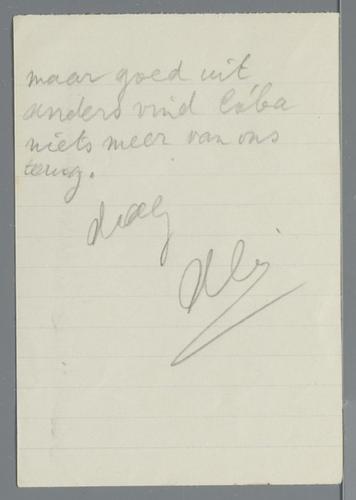 maar goed uit,
anders vind Cóba
niets meer van ons
terug.